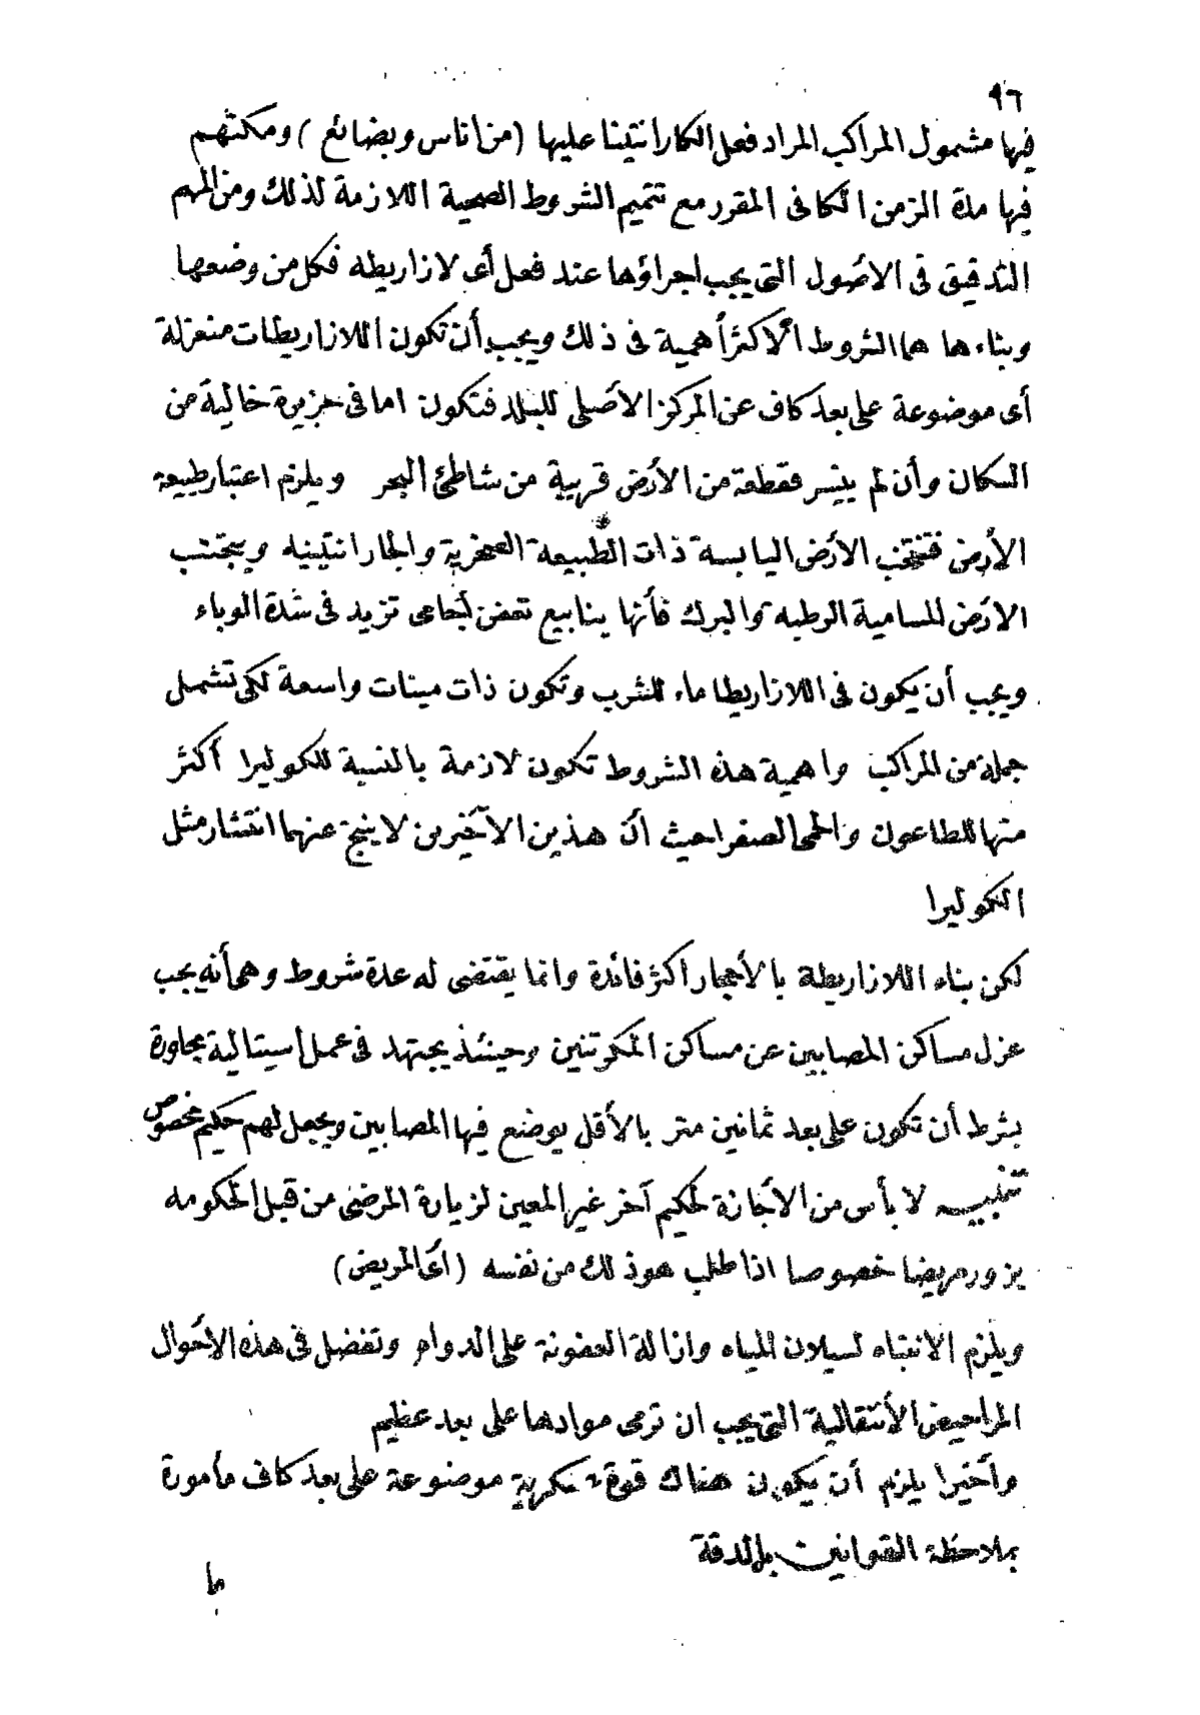 ٩٦
فيها مشمول المراكب المراد فعل الكارانتينا عليها (من اناس وبضائع) ومكثهم
فيها مدة الزمن الكافى المقرر مع تتميم الشروط الصحية اللازمة لذلك ومن المهم
التدقيق فى الاصول التى يجب اجراؤها عند فعل أى لازاريطه فكل من وضعها
وبناءها هما الشروط الاكثر أهمية فى ذلك ويجب أن تكون اللازاريطات منعزلة
أى موضوعة على بعد كاف عن المركز الأصلى للبلد فتكون اما فى جزيرة خالية من
السكان وأن لم يتيسر فقطعة من الأرض قريبة من شاطئ البحر ويلزم اعتبار طبيعه
الأرض فتنتخب الأرض اليابسة ذات الطبيعة الصخرية والجارانتينيه ويجتنب
الارض المسامية الرطبه والبرك فأنها ينابيع تعفن تزيد فى شدة الوباء
ويجب أن يكون فى اللازاريطا ماء للشرب وتكون ذات مينات واسعة لكى تشمل
جملة من المراكب واهمية هذه الشروط تكون لازمة بالنسبة للكوليرا أكثر
منها للطاعون والحمى الصفرا حيث أن هذين الأخيرين لا ينتج عنهما انتشار مثل
الكوليرا
لكن بناء اللازاريطة بالأحجار اكثر فائدة وانما يقتضى له عدة شروط وهى أنه يجب
عزل مساكن المصابين عن مساكن المكرتنين وحينئذ يجتهد فى عمل اسبتالية مجاورة
بشرط أن تكون على بعد ثمانين متر بالأقل يوضع فيها المصابين ويجعل لهم حكيم مخصوص
تنبيه لا بأس من الأجازة لحكيم آخر غير المعين لزيارة المرضى من قبل الحكومه
يزور مريضا خصوصا اذا طلب هو ذلك من نفسه (أى المريض)
ويلزم الانتباه لسيلان المياه وازالة العفونة على الدوام وتفضل فى هذه الأحوال
المراحيض الأنتقالية التى يجب ان ترمى موادها على بعد عظيم
وأخيرا يلزم أن يكون هناك قوة عسكرية موضوعة على بعد كاف مأمورة
بملاحظة القوانين بالدقة
ما